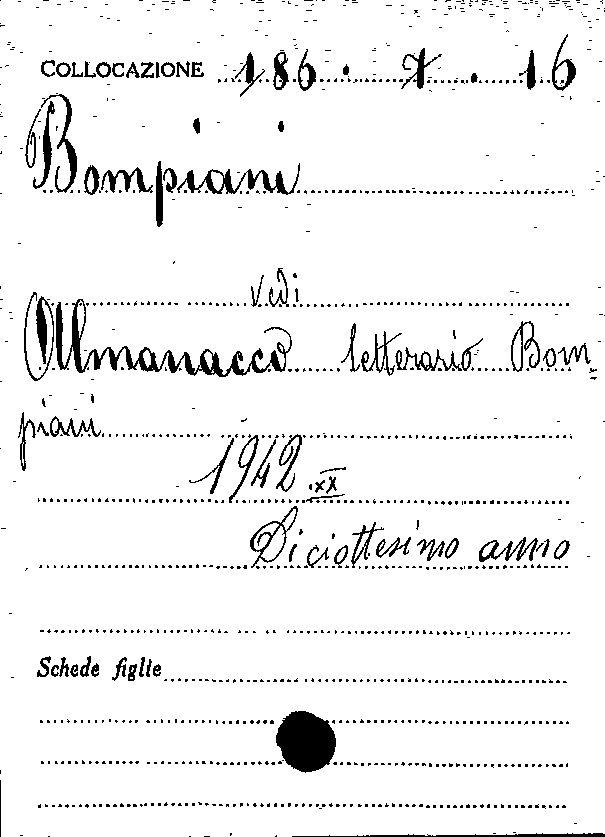 COLLOCAZIONE 186 . 7 . 16
Bompiani
vedi
Almanacco letterario Bom=
piani
1942 XX
Diciottesimo anno
Schede figlie